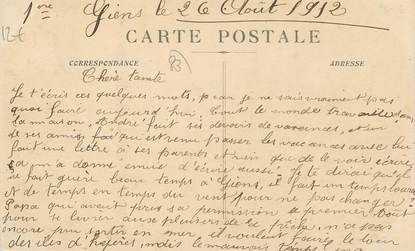 1re Giens le 26 Août 1912
12€
CARTE POSTALE
CORRESPONDANCE
ADRESSE
83
Chère tante
Je t'écris ces quelques mots, car je ne sais vraiment pas
quoi faire aujourd'hui. Tout le monde travaille dans
la maison, André fait ses devoirs de vacances, et un
de ses amis qui est venu passer les vacances avec lui
fait une lettre à ses parents et rien que de le voir écrire
ça m'a donné envie d'écrire aussi. Je te dirai qu'il
ne fait guère beau temps à Giens, il fait un temps lourd
et de temps en temps du vent pour ne pas changer.
Papa qui avait pris sa permission le premier Août
pour se livrer aux plaisirs de la pêche, n'a
encore pu sortir en mer, il voulait faire le tour
des iles d'hyères, mais le mauvais